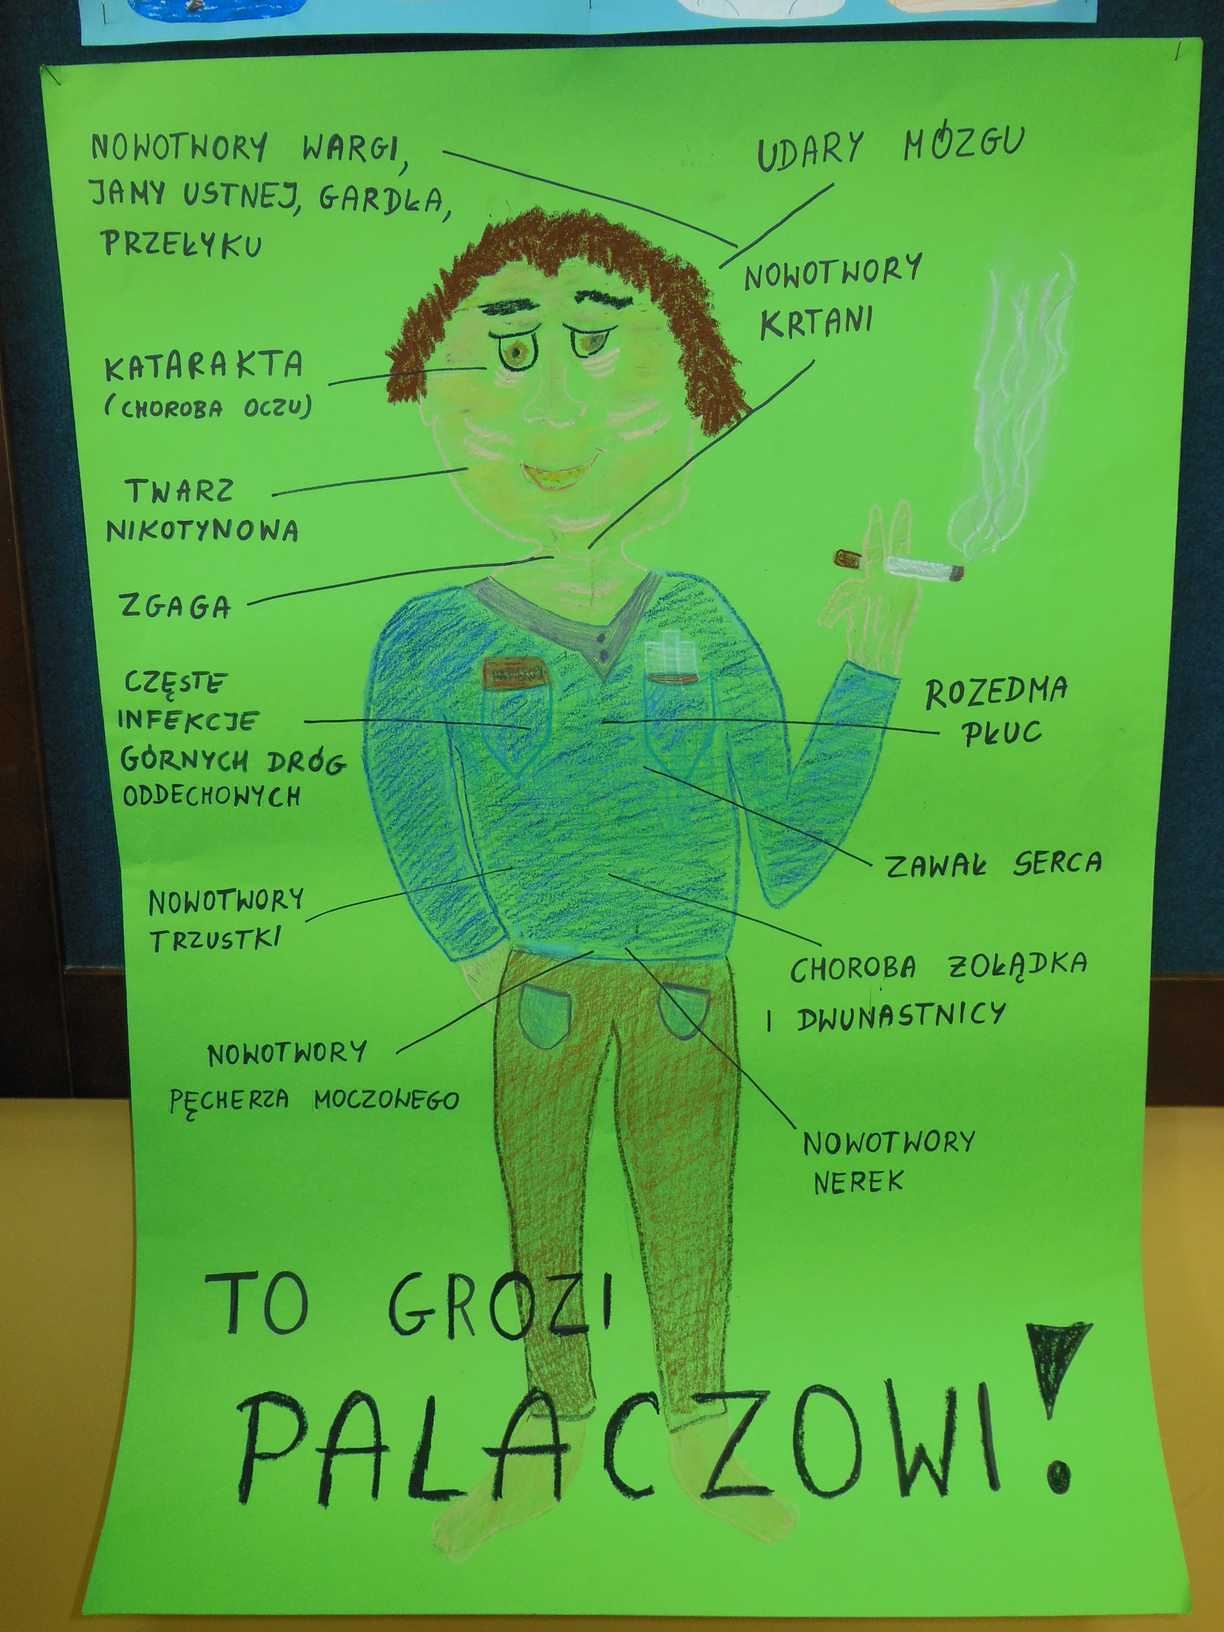 NOWOTWORY WARGI,
JAMY USTNEJ, GARDŁA,
PRZEŁYKU
UDARY MÓZGU
NOWOTWORY
KRTANI
KATARAKTA
(CHOROBA OCZU)
TWARZ
NIKOTYNOWA
ZGAGA
CZĘSTE
INFEKCJE
GÓRNYCH DRÓG
ODDECHOWYCH
ROZEDMA
PŁUC
ZAWAŁ SERCA
NOWOTWORY
TRZUSTKI
CHOROBA ŻOŁĄDKA
I DWUNASTNICY
NOWOTWORY
PĘCHERZA MOCZOWEGO
NOWOTWORY
NEREK
TO GROZI
PALACZOWI!